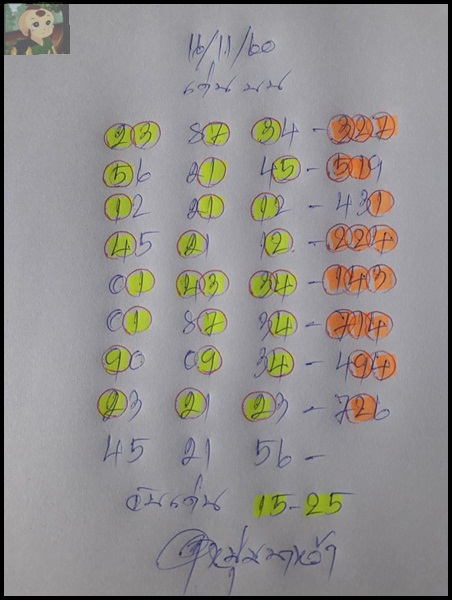 16/11/60
เด่น บน
23 87 34 - 327
56 21 45 - 519
12 21 12 - 431
45 21 12 - 224
01 43 34 - 143
01 87 34 - 714
90 09 34 - 494
23 21 23 - 726
45 21 56 -
จับเด่น 15-25